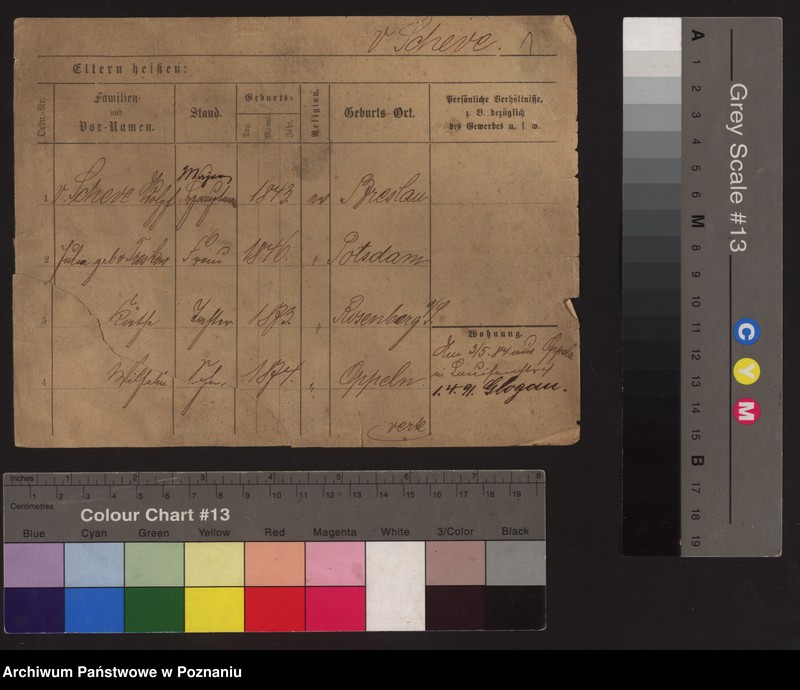 v. Scheve. 1
Eltern heißen:
Ordn.-Nr.
Familien-
und
Vor-Namen.
Stand.
Geburts-
Tag.
Monat.
Jahr.
Religion.
Geburts-Ort.
Persönliche Verhältnisse,
z. B. bezüglich
des Gewerbes u. s. w.
Major
1 v. Scheve 1843. ev Breslau
2 Julia geb v Frau " Potsdam
3 Käthe Tochter 1873. " Rosenberg O/S.
4 Wilhelm 1874. " Oppeln.
Wohnung.
3/5. 84 aus Oppeln
in
1.4.91. Glogau.
verte
Inches 1 2 3 4 5 6 7 8
1 2 3 4 5 6 7 8 9 10 11 12 13 14 15 16 17 18 19
Centimetres
Colour Chart #13
Blue Cyan Green Yellow Red Magenta White 3/Color Black
Grey Scale #13
A 1 2 3 4 5 6 M 8 9 10 11 12 13 14 15 B 17 18 19
C Y M
Archiwum Państwowe w Poznaniu